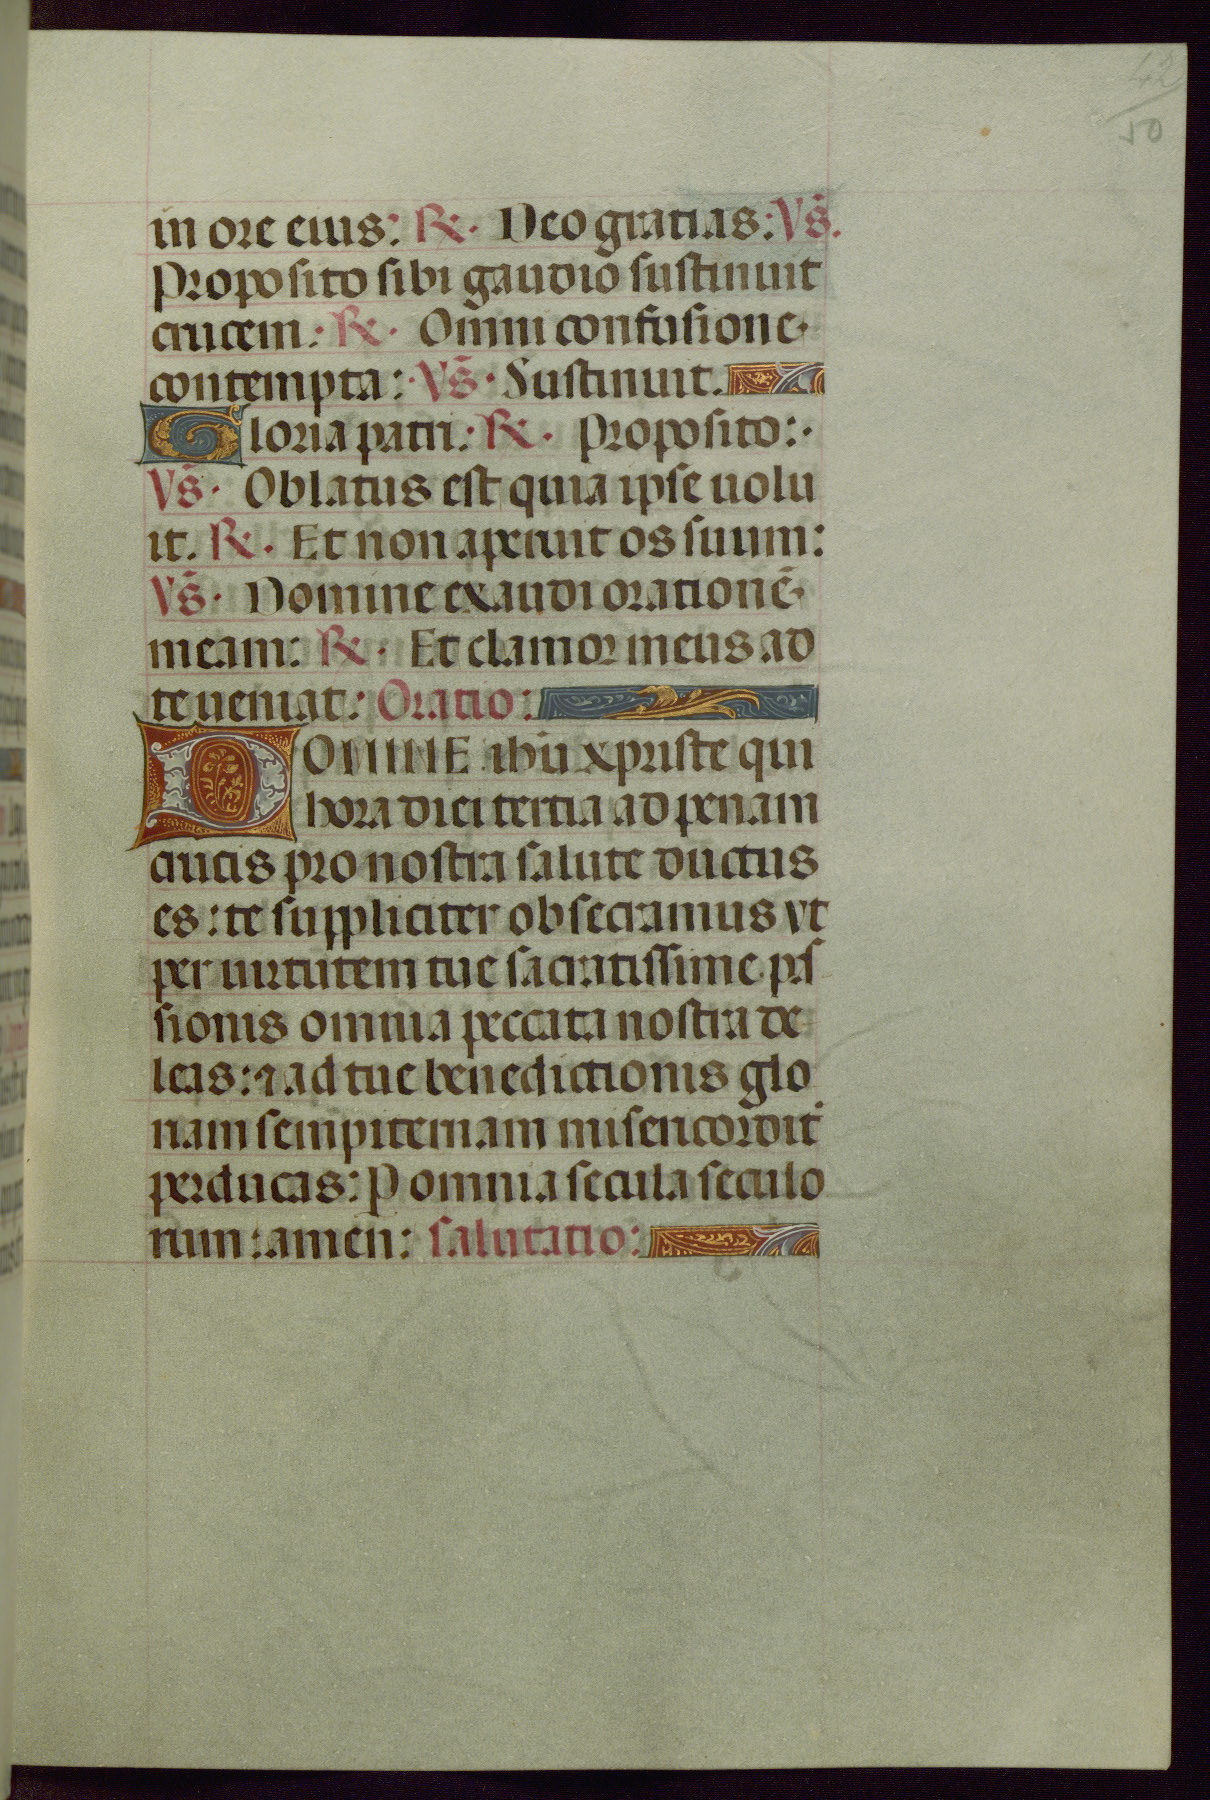 42
50
in ore eius: R℣. Deo gratias: Vs̄.
Proposito sibi gaudio sustinuit
crucem: R. Omni confusione
contempta: Vs̄. Sustinuit.
Gloria patri: R. Proposito:
Vs̄. Oblatus est quia ipse uolu
it. R. Et non aperuit os suum:
Vs̄. Domine exaudi orationē
meam: R. Et clamor meus ad
te ueniat: Oratio:
DOMINE ihū xpriste qui
hora diei tertia ad penam
crucis pro nostra salute ductus
es: te suppliciter obsecramus vt
per uirtutem tue sacratissime pas
sionis omnia peccata nostra de
leas: ⁊ ad tue benedictionis glo
riam sempiternam misericordit̾
perducas: P omnia secula seculo
rum: amen: salutatio: